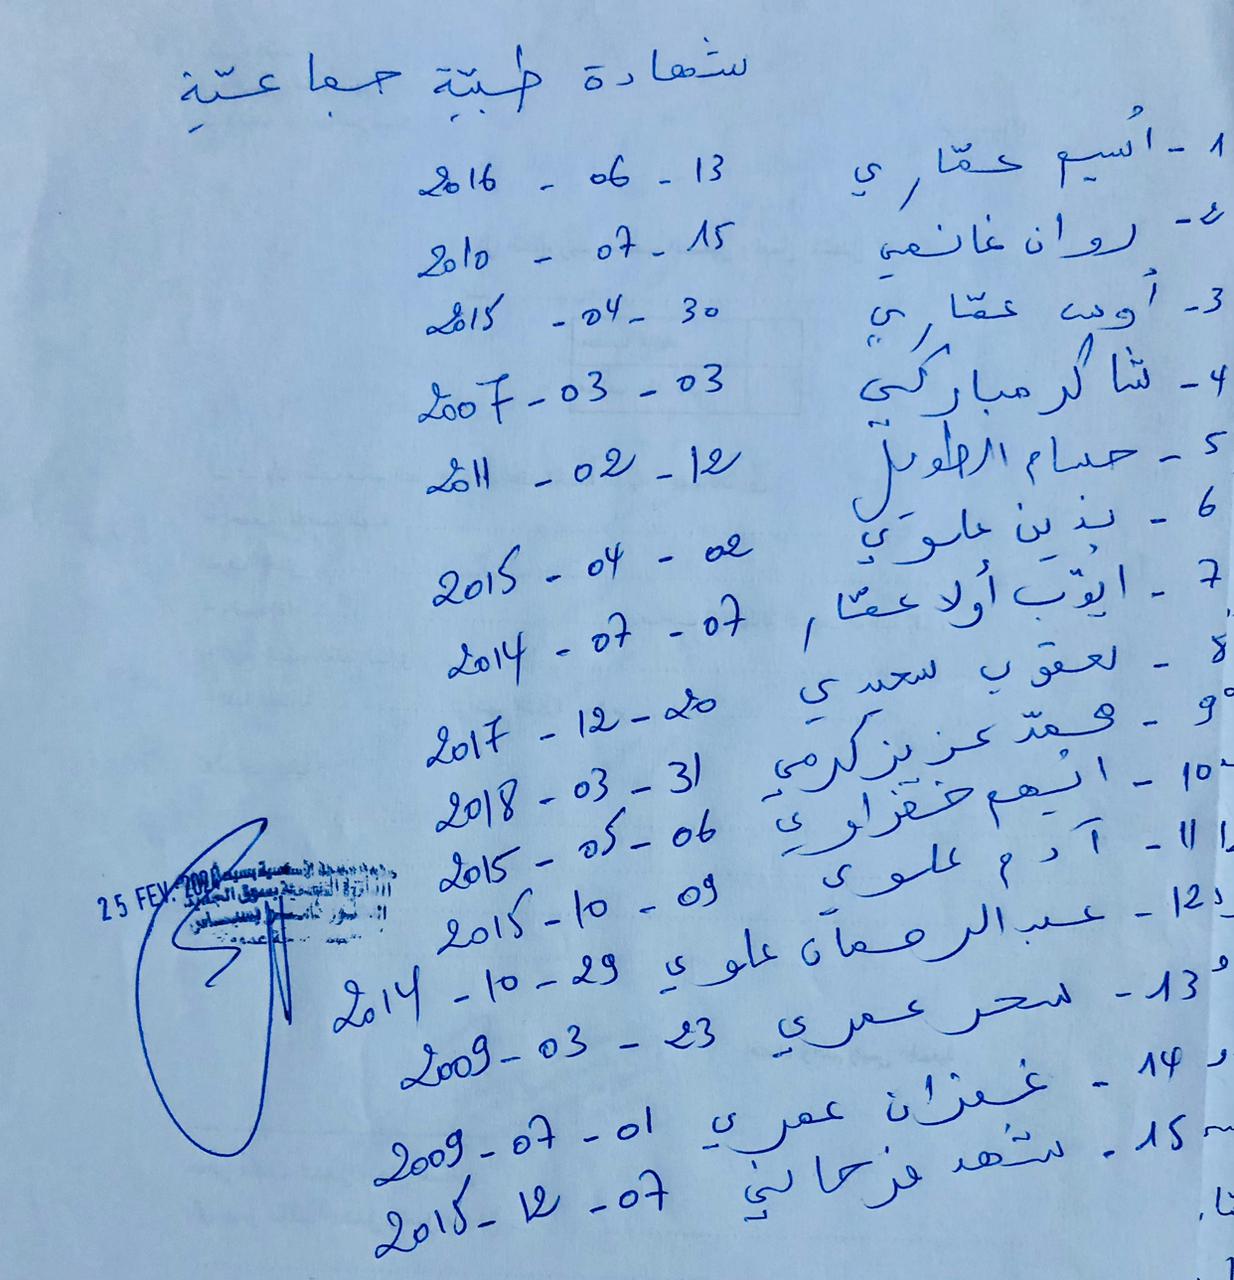 شهادة طبيّة جماعيّة
1 - أسيم عمّاري 13 - 06 - 2016
2 - روان غانمي 15 - 07 - 2010
3 - أوس عمّاري 30 - 04 - 2015
4 - شاكر مباركي 03 - 03 - 2007
5 - حسام الطويل 12 - 02 - 2011
6 - علوي 02 - 04 - 2015
7 - ايّوب أولاد عمّار 07 - 07 - 2014
8 - يعقوب سعيدي 20 - 12 - 2017
9 - محمّد عزيز كرمي 31 - 03 - 2018
10 - خضراوي 06 - 05 - 2015
11 - آدم علوي 09 - 10 - 2015
12 - عبد الرحمان علوي 29 - 10 - 2014
13 - سحر عمري 23 - 03 - 2009
14 - غفران عمري 01 - 07 - 2009
15 - شهد 07 - 12 - 2015
25 FEV.